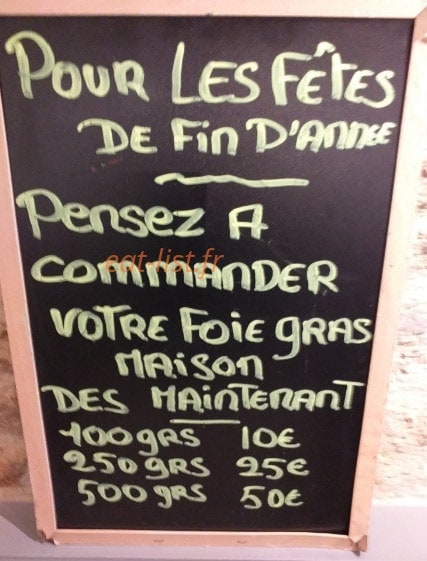 POUR LES FÊTES
DE FIN D'ANNEE
PENSEZ A
COMMANDER
eat-list.fr
VOTRE FOIE GRAS
MAISON
DES MAINTENANT
100GRS 10€
250GRS 25€
500GRS 50€